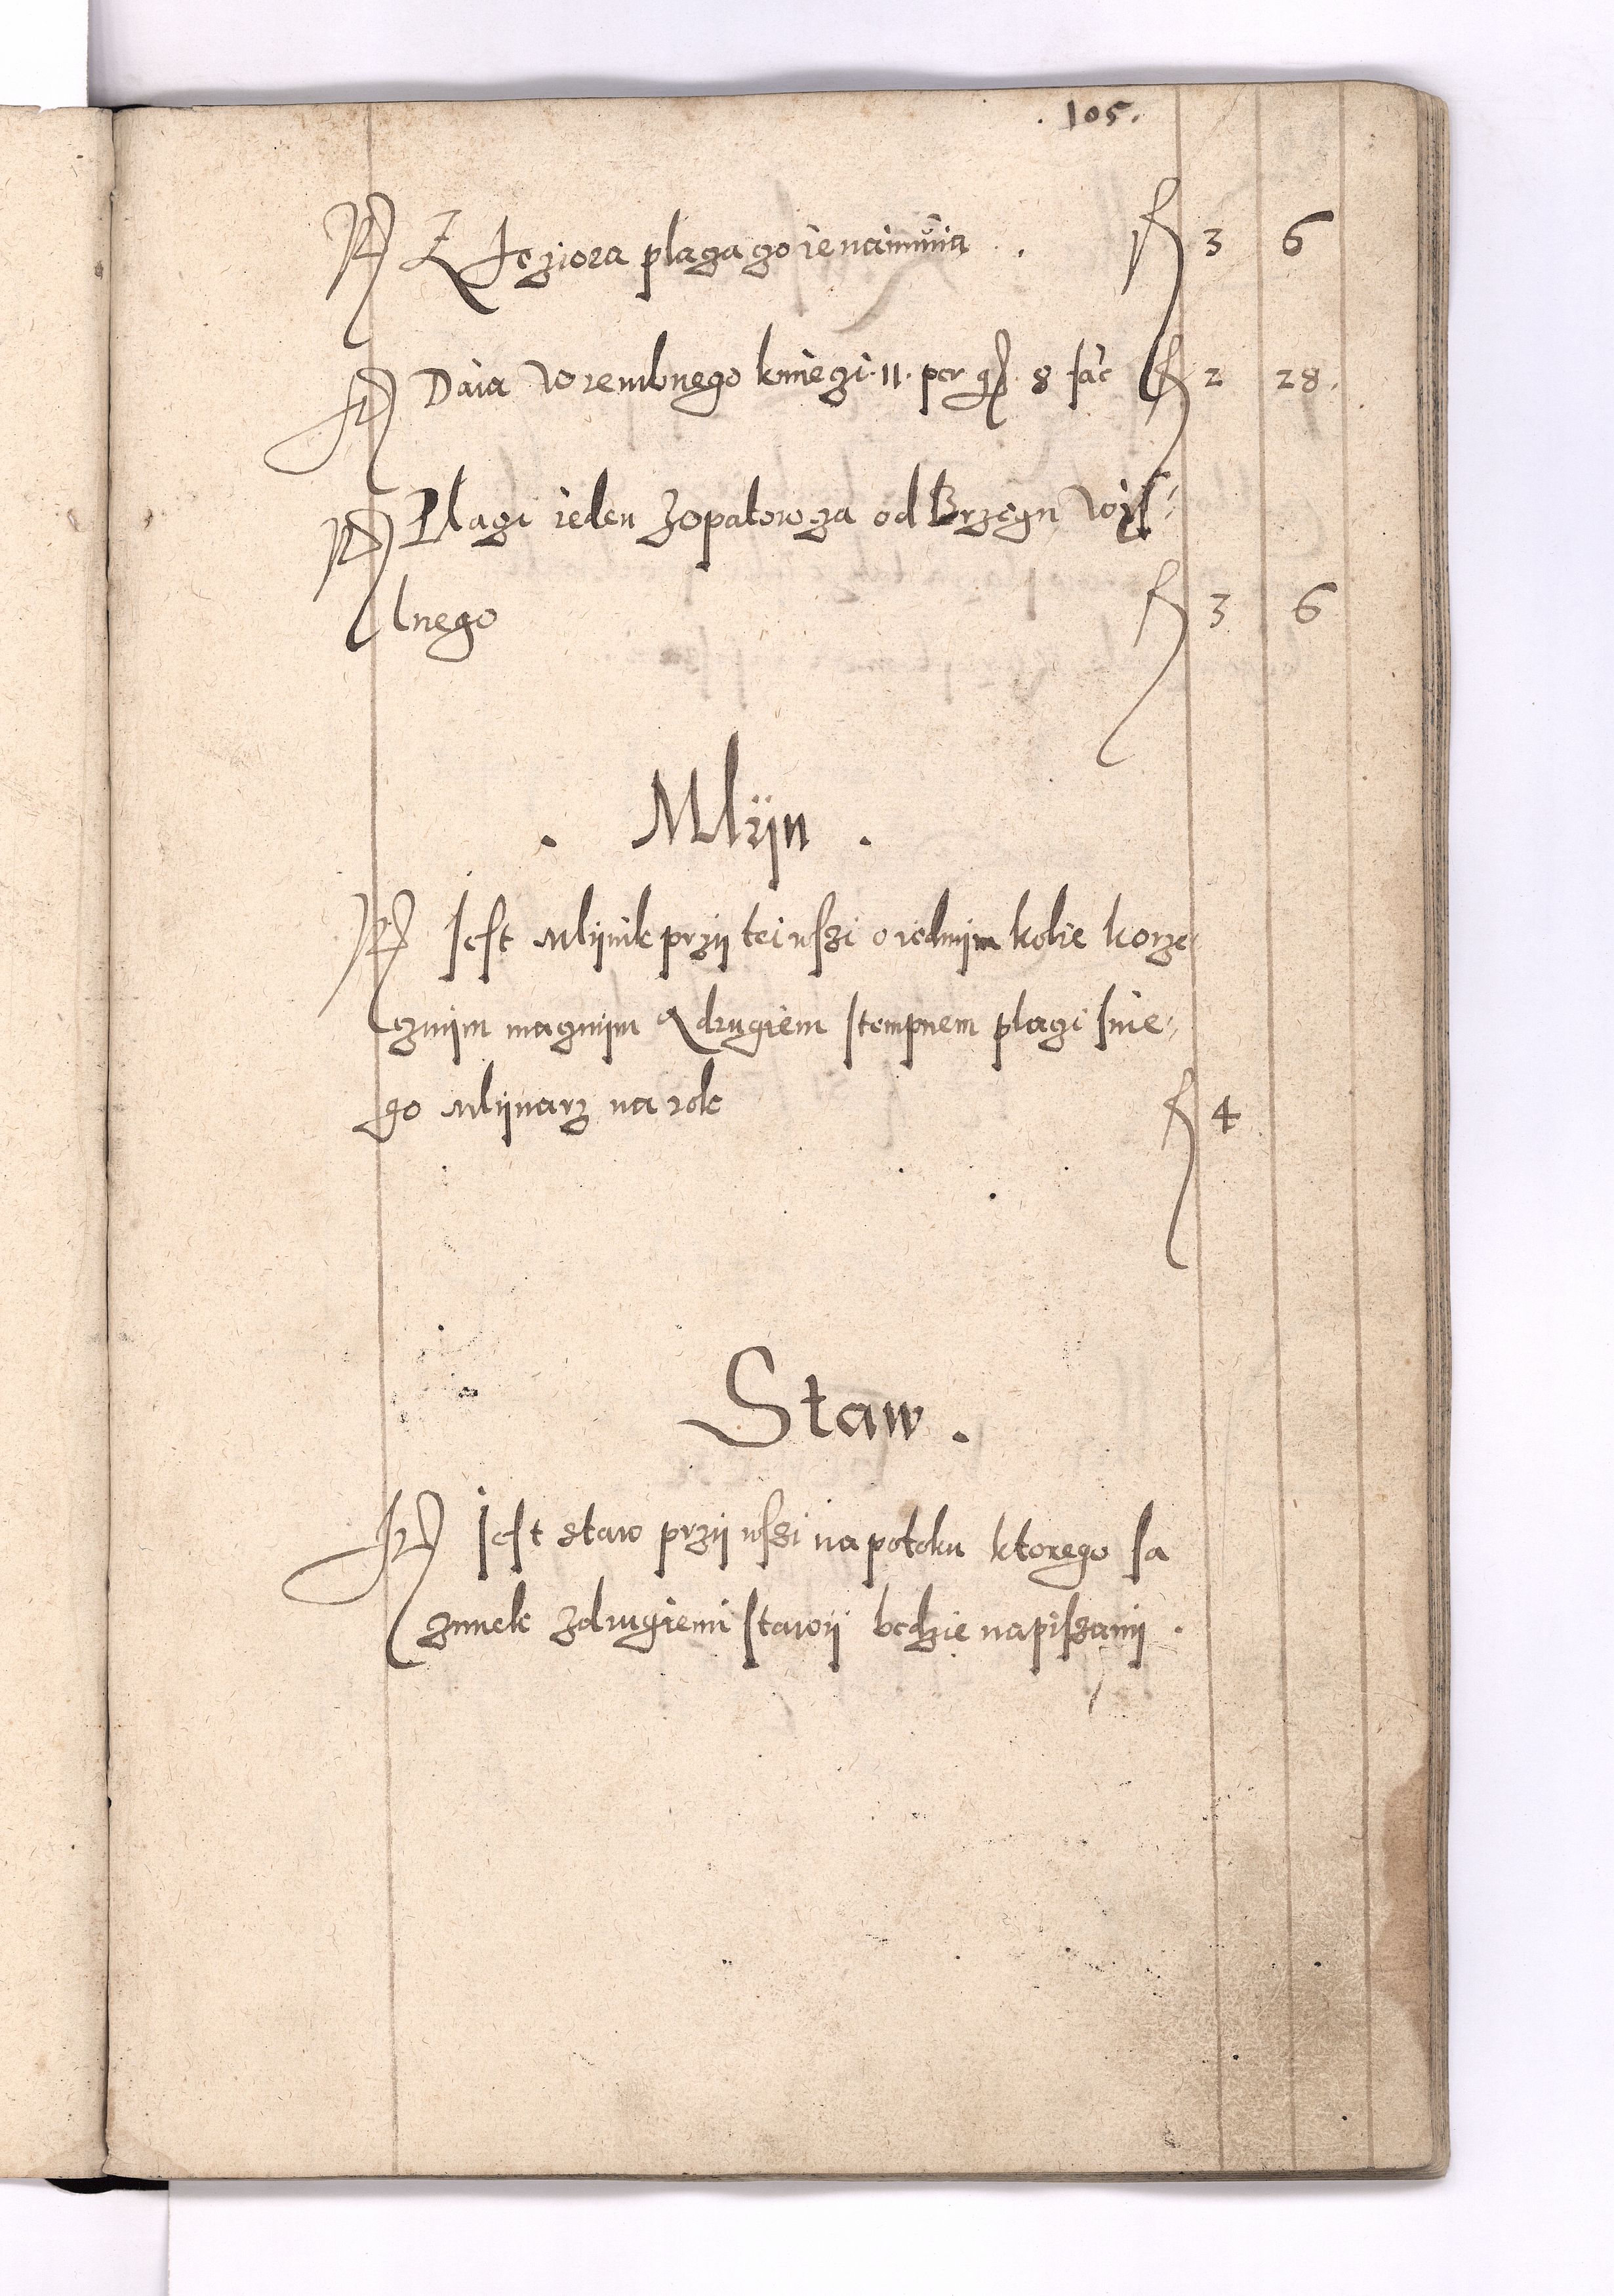 . 105.
Z Jeziora placza go ie naimuia . f 3 6
Daia Worembnego kmiegi .11. per g 8 fac f 2 28.
Placzi ieden Zopatowza od Brzegu Wisl
lnego f 3 6
. Mlijn .
Jest mlijnik przij tei wszi o iednijm kolie korze
cznijm macznijm A drugiem stempnem placzi snie
go mlijnarz na rok f 4
Staw .
Jest staw przij wszi na potoku ktorego sa
cunek z drugiemi stawij bedzie napiszanij .